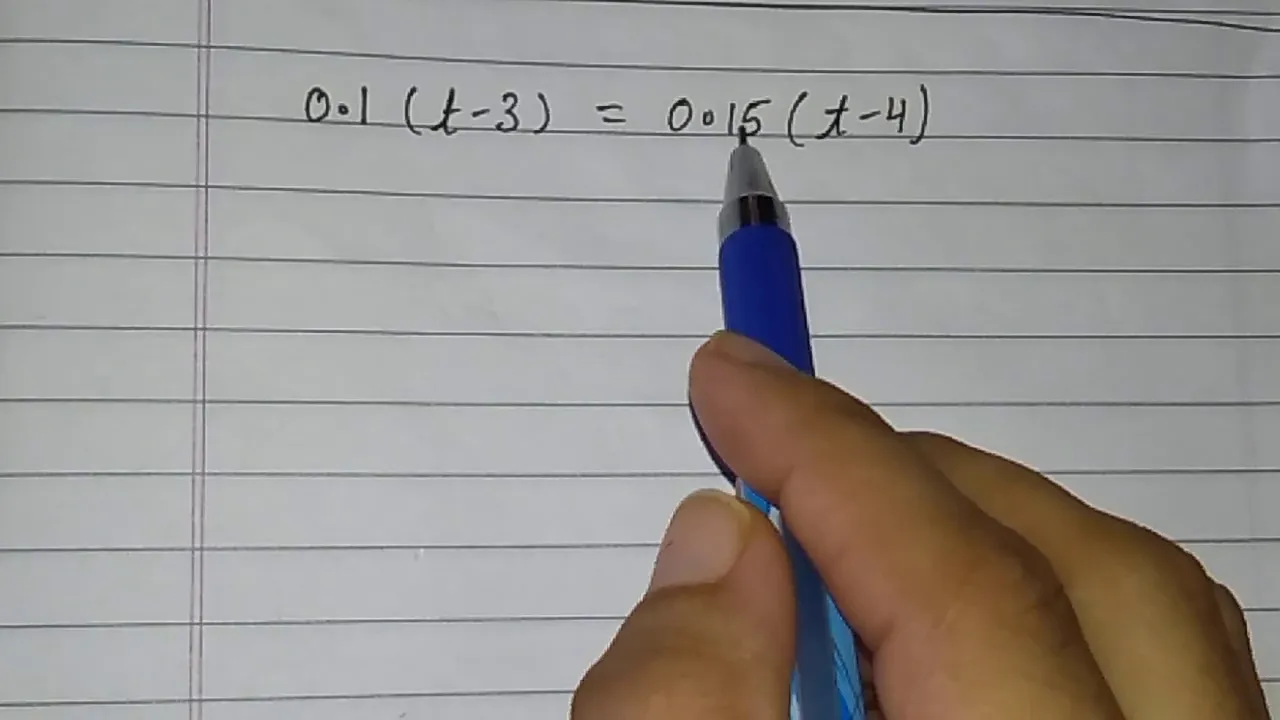 0.1 (t-3) = 0.15 (t-4)